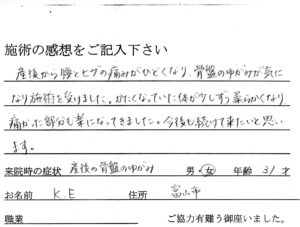 施術の感想をご記入下さい
産後から腰とヒザの痛みがひどくなり、骨盤のゆがみが気に
なり施術を受けました。かたくなっていた体が少しずつ柔らかくなり
痛かった部分も楽になってきました。今後も続けて来たいと思い
ます。
来院時の症状 産後の骨盤のゆがみ 男・女 年齢 31才
お名前 K.E 住所 富山市
職業 ご協力有難う御座いました。